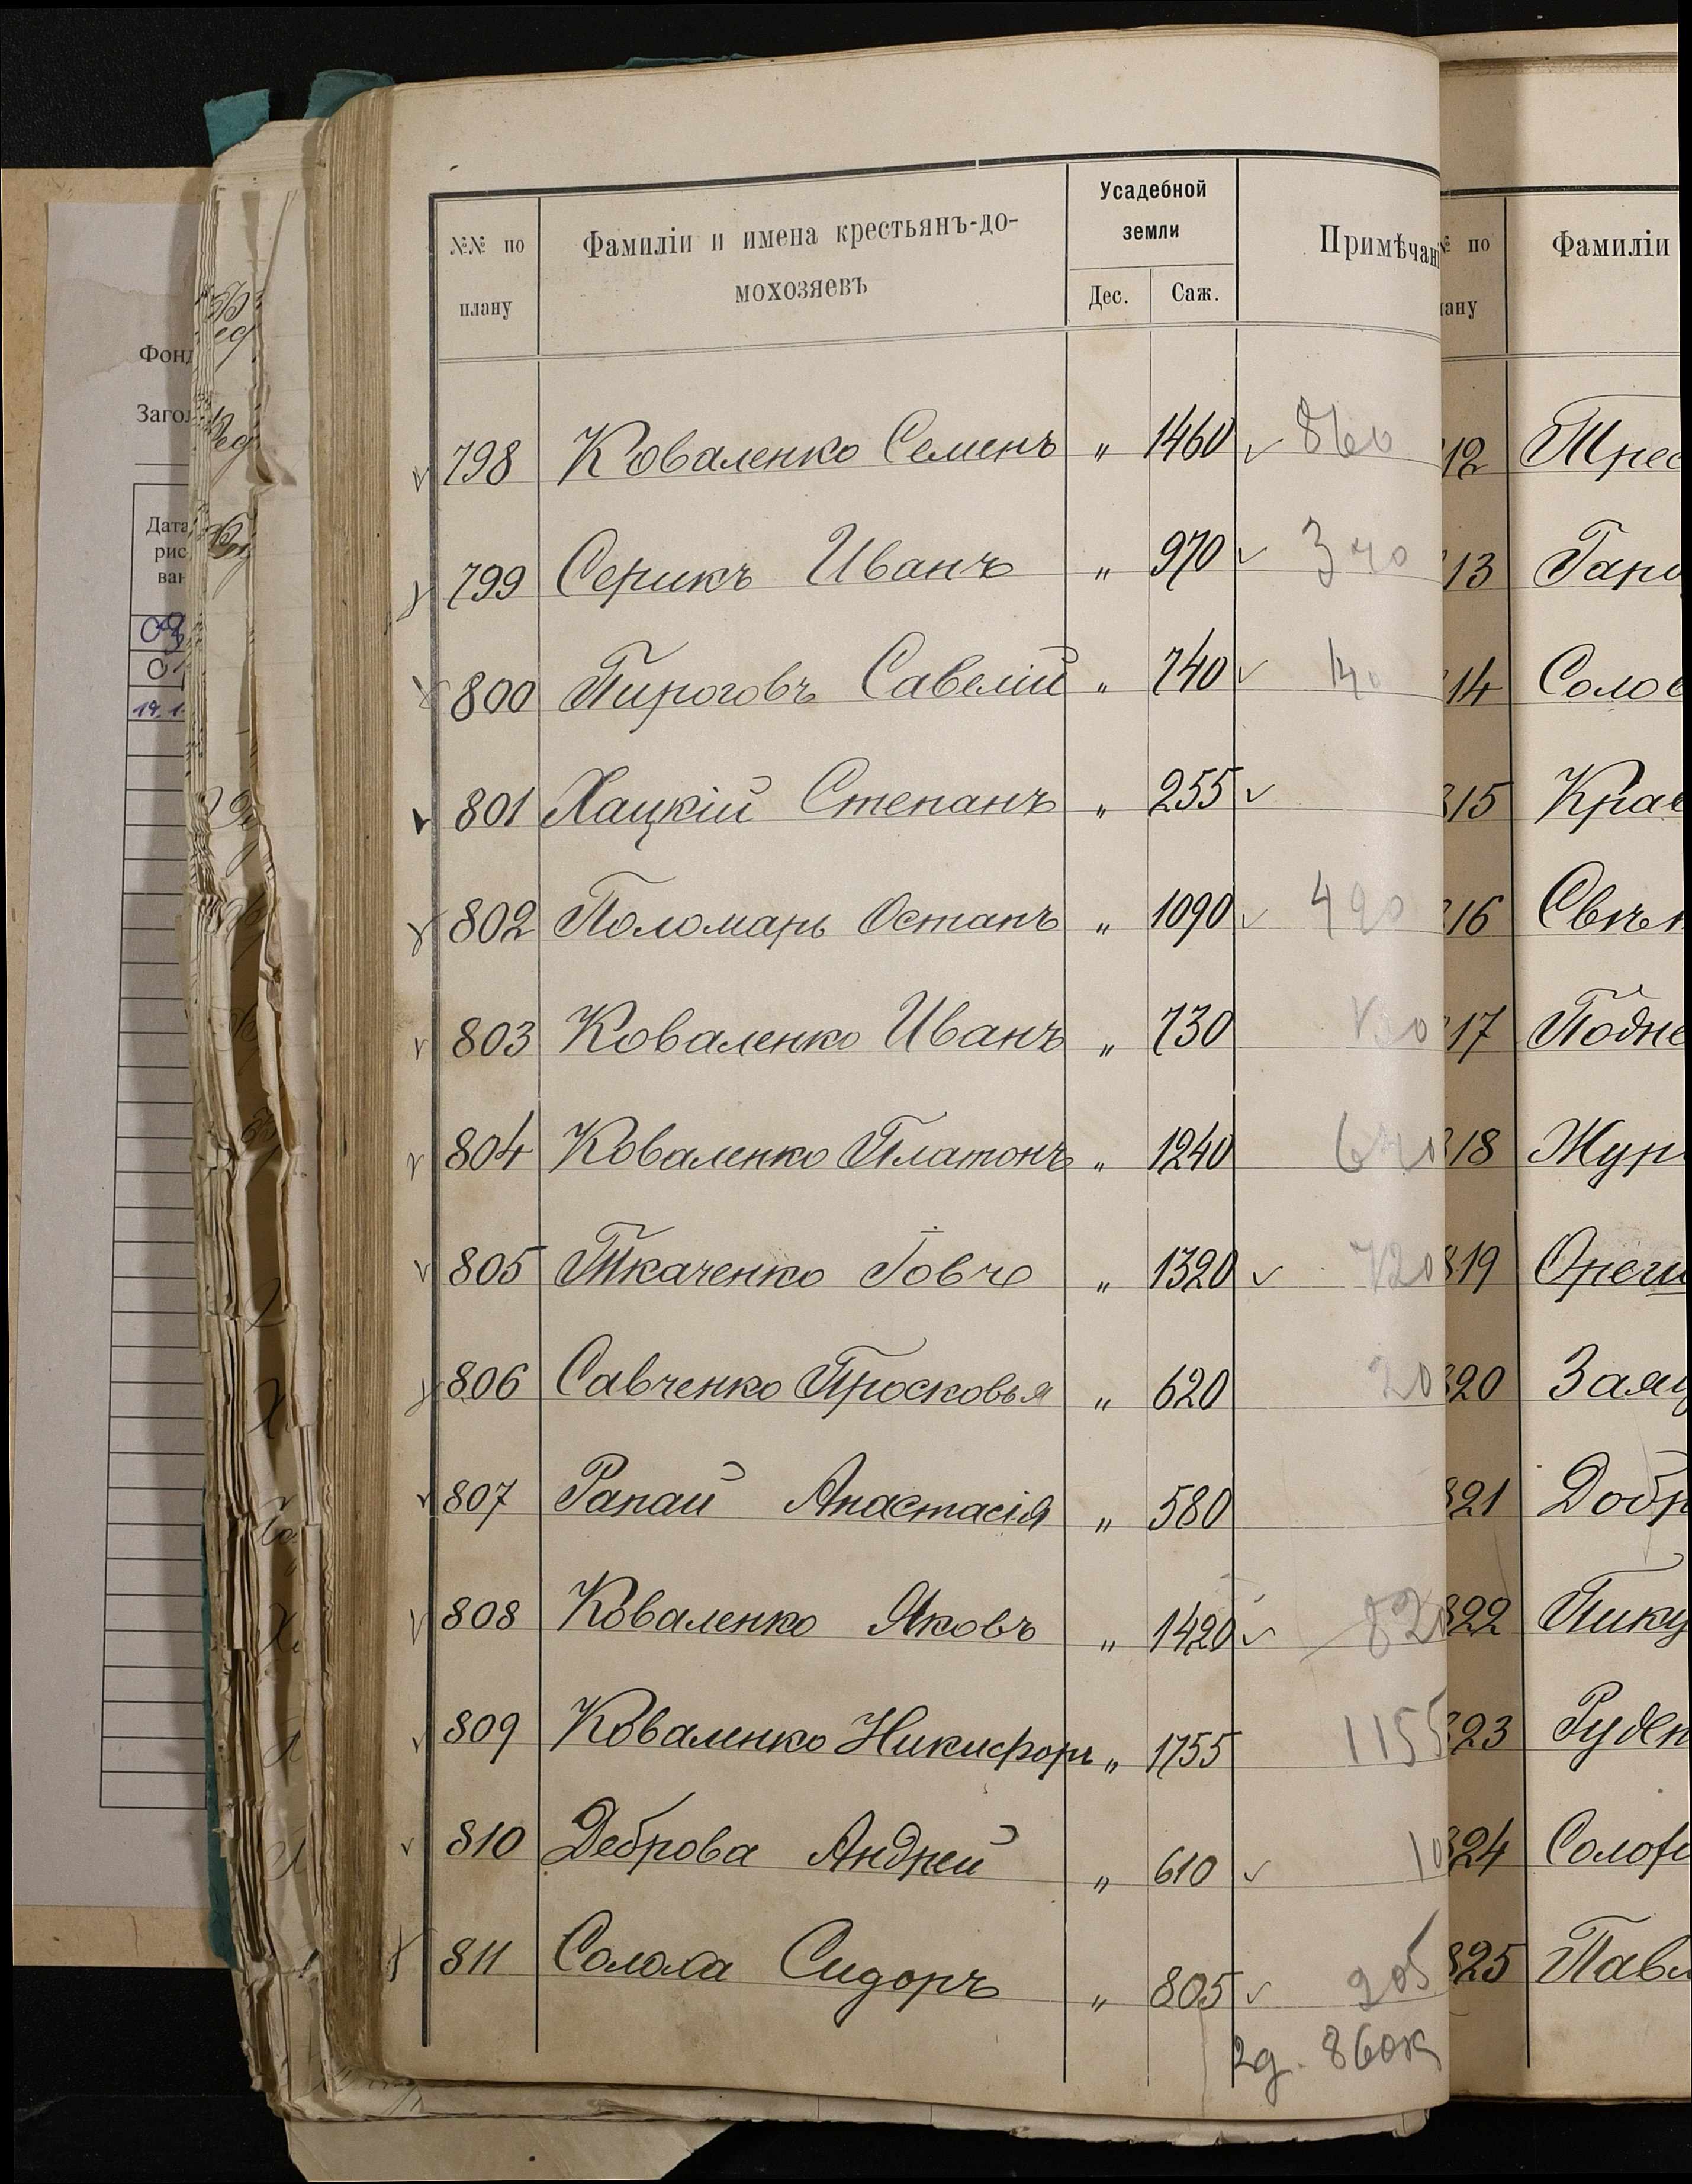 Усадебной
земли
№№ по
плану
Фамиліи и имена крестьянъ-до-
мохозяевъ
Дес. Саж.
Примѣчан
798 Коваленко Семенъ „ 1460 860
799 Серикъ Иванъ „ 970 370
800 Пироговъ Савелій „ 740 140
801 Хацкій Степанъ „ 255
802 Поломарь Остапъ „ 1090 490
803 Коваленко Иванъ „ 730
804 Коваленко Платонъ „ 1240
805 Ткаченко Іовъ „ 1320 720
806 Савченко Просковья „ 620 20
807 Рапай Анастасія „ 580
808 Коваленко Яковъ „ 1420 82
809 Коваленко Никифоръ „ 1755 1155
810 Деброва Андрей „ 610 10
811 Солоха Сидоръ „ 805 205
2д. 860
№ по
лану
Фамиліи
12 Трес
13
14 Солов
815 Крав
16
17 Подне
818 Жур
819
820 Заяц
821 Добр
822 Пику
823 Руден
824
825 Павл
Фонд
Загол
Дата
рис
ван